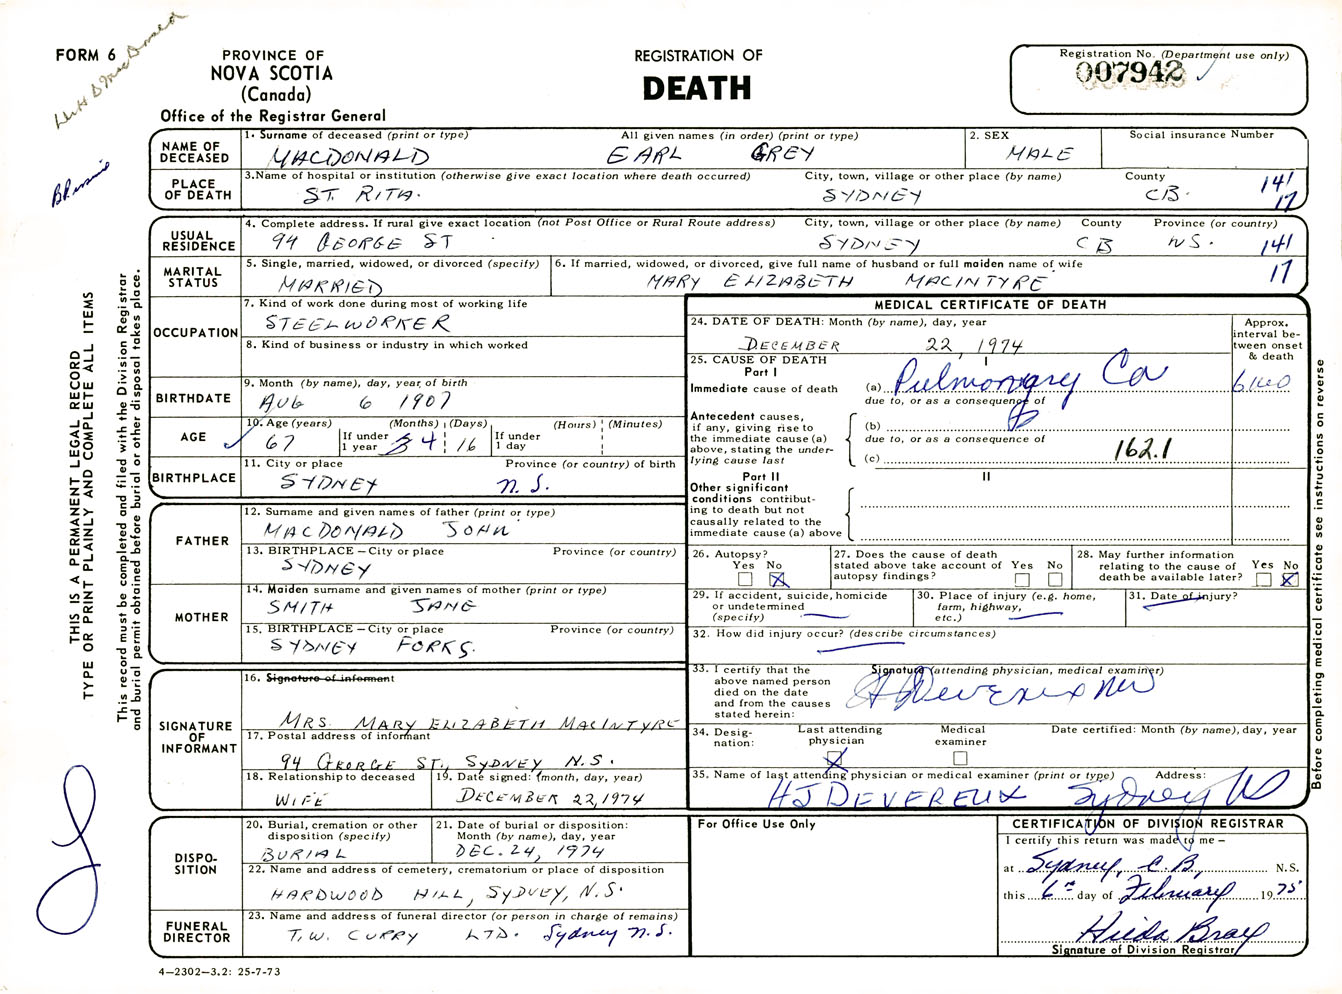 FORM 6
PROVINCE OF
NOVA SCOTIA
(Canada)
Office of the Registrar General
REGISTRATION OF
DEATH
Registration No. (Department use only)
007942
NAME OF DECEASED
1. Surname of deceased (print or type) All given names (in order) (print or type)
MACDONALD EARL GREY
2. SEX
MALE
Social insurance Number
PLACE OF DEATH
3. Name of hospital or institution (otherwise give exact location where death occurred) City, town, village or other place (by name) County
ST. RITA. SYDNEY CB. 141
17
USUAL RESIDENCE
4. Complete address. If rural give exact location (not Post Office or Rural Route address) City, town, village or other place (by name) County Province (or country)
94 GEORGE ST SYDNEY CB NS. 141
17
MARITAL STATUS
5. Single, married, widowed, or divorced (specify)
MARRIED
6. If married, widowed, or divorced, give full name of husband or full maiden name of wife
MARY ELIZABETH MACINTYRE
OCCUPATION
7. Kind of work done during most of working life
STEELWORKER
8. Kind of business or industry in which worked
BIRTHDATE
9. Month (by name), day, year, of birth
AUG 6 1907
AGE
10. Age (years) (Months) (Days) (Hours) (Minutes)
67 If under 1 year 4 16 If under 1 day
BIRTHPLACE
11. City or place Province (or country) of birth
SYDNEY N.S.
FATHER
12. Surname and given names of father (print or type)
MACDONALD JOHN
13. BIRTHPLACE – City or place Province (or country)
SYDNEY
MOTHER
14. Maiden surname and given names of mother (print or type)
SMITH JANE
15. BIRTHPLACE – City or place Province (or country)
SYDNEY FORKS.
SIGNATURE OF INFORMANT
16. Signature of informant
MRS. MARY ELIZABETH MACINTYRE
17. Postal address of informant
94 GEORGE ST., SYDNEY N.S.
18. Relationship to deceased
WIFE
19. Date signed: (month, day, year)
DECEMBER 22, 1974
DISPO-
SITION
20. Burial, cremation or other
disposition (specify)
BURIAL
21. Date of burial or disposition:
Month (by name), day, year
DEC. 24, 1974
22. Name and address of cemetery, crematorium or place of disposition
HARDWOOD HILL, SYDNEY, N.S.
FUNERAL DIRECTOR
23. Name and address of funeral director (or person in charge of remains)
T.W. CURRY LTD. Sydney N.S.
4—2302—3.2: 25-7-73
MEDICAL CERTIFICATE OF DEATH
24. DATE OF DEATH: Month (by name), day, year
DECEMBER 22, 1974
Approx.
interval be-
tween onset
& death
25. CAUSE OF DEATH
Part I
I
Immediate cause of death (a) Pulmonary Ca 6 mo
due to, or as a consequence of
Antecedent causes,
if any, giving rise to
the immediate cause (a)
above, stating the under-
lying cause last
(b)
due to, or as a consequence of
(c) 162.1
Part II
II
Other significant
conditions contribut-
ing to death but not
causally related to the
immediate cause (a) above
26. Autopsy?
Yes No
27. Does the cause of death
stated above take account of
autopsy findings?
Yes No
28. May further information
relating to the cause of
death be available later?
Yes No
29. If accident, suicide, homicide
or undetermined
(specify)
30. Place of injury (e.g. home,
farm, highway,
etc.)
31. Date of injury?
32. How did injury occur? (describe circumstances)
33. I certify that the
above named person
died on the date
and from the causes
stated herein:
Signature (attending physician, medical examiner)
HJ Devereux MD
34. Desig-
nation:
Last attending
physician
Medical
examiner
Date certified: Month (by name), day, year
35. Name of last attending physician or medical examiner (print or type) Address:
HJ DEVEREUX Sydney NS
For Office Use Only
CERTIFICATION OF DIVISION REGISTRAR
I certify this return was made to me —
at Sydney, C.B., N.S.
this 6th day of February 1975
Hilda Bray
Signature of Division Registrar
THIS IS A PERMANENT LEGAL RECORD
TYPE OR PRINT PLAINLY AND COMPLETE ALL ITEMS
This record must be completed and filed with the Division Registrar
and burial permit obtained before burial or other disposal takes place.
Before completing medical certificate see instructions on reverse